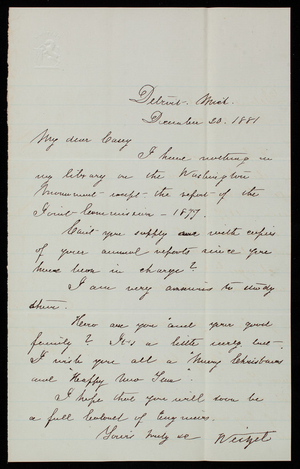 Detroit, Mich.
December 20. 1881
My dear Casey
I have nothing in
my library on the Washington
Monument - except - the report - of the
Joint Commission - 1877.
Can't you supply me with copies
of your annual reports since you
have been in charge?
I am very anxious to study
them.
How are you and your good
family? It's a little early but -
I wish you all a "Merry Christmas
and Happy New Year".
I hope that you will soon be
a full Colonel of Engineers.
Yours truly &c Weitzel